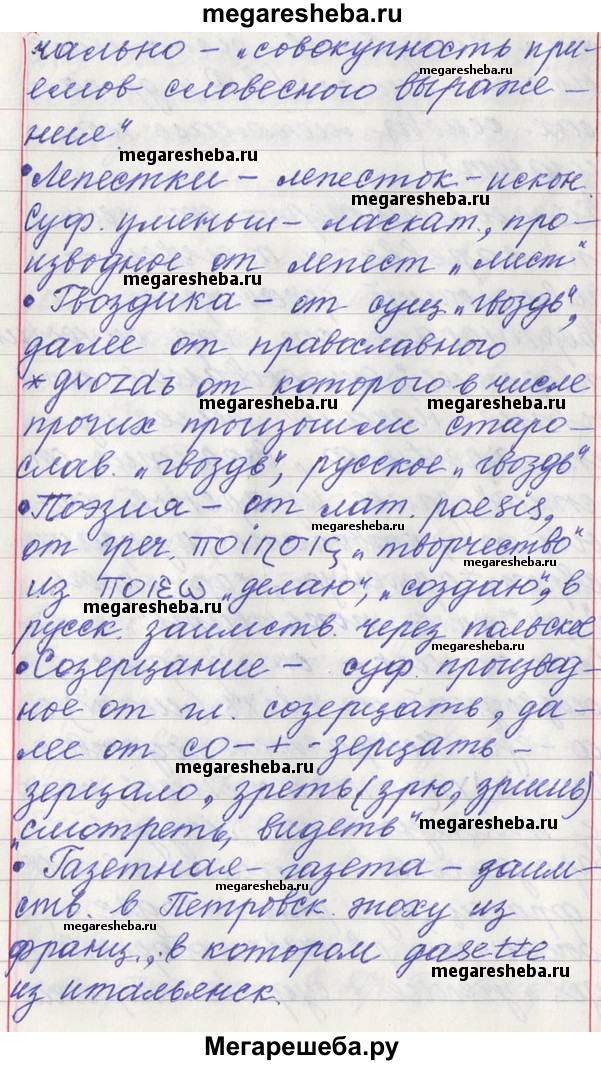 megaresheba.ru
чально – „совокупность при-
megaresheba.ru
емов словесного выраже –
ния“.
megaresheba.ru
• Лепестки – лепесток – искон.
Суф. уменьш – ласкат., про-
изводное от лепест „лист“
megaresheba.ru
• Гвоздика – от сущ „гвоздь“,
далее от православного
* gvozdъ от которого в числе
megaresheba.ru megaresheba.ru
прочих произошли старо-
слав. „гвоздь“, русское „гвоздь“
• Поэзия – от лат. poesis,
megaresheba.ru
от греч. ποίησις „творчество“
из ποιεω „делаю“, „создаю“, в
megaresheba.ru
русск. заимств. через польское
megaresheba.ru
• Созерцание – суф. производ-
ное от гл. созерцать, да-
лее от со- + -зерцать –
megaresheba.ru
зерцало, зреть (зрю, зришь)
„смотреть, видеть“
megaresheba.ru
• Газетная – газета – заим-
megaresheba.ru
ств. в Петровск. эпоху из
megaresheba.ru
франц., в котором gasette
megaresheba.ru
из итальянск.
Мегарешеба.ру